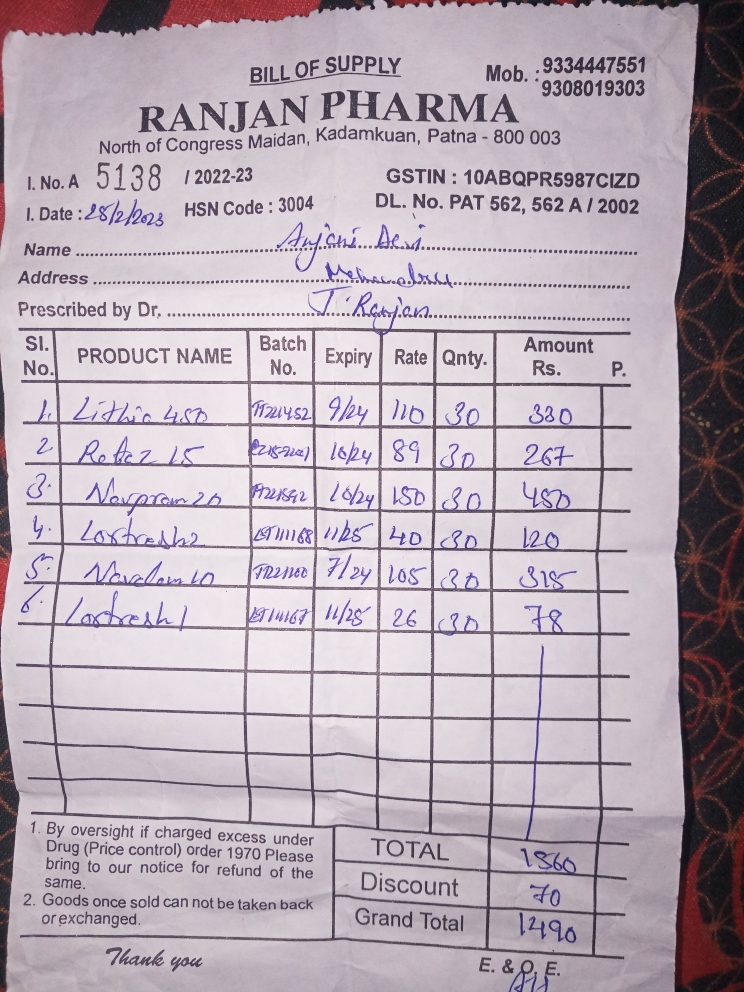 BILL OF SUPPLY
Mob. : 9334447551
9308019303
RANJAN PHARMA
North of Congress Maidan, Kadamkuan, Patna - 800 003
I. No. A 5138 / 2022-23 GSTIN : 10ABQPR5987CIZD
I. Date : 28/2/2023 HSN Code : 3004 DL. No. PAT 562, 562 A / 2002
Name Anjani Devi
Address
Prescribed by Dr. J. Ranjan
Sl. No. PRODUCT NAME Batch No. Expiry Rate Qnty. Amount Rs. P.
1. Lithic 450 9/24 110 30 330
2. Retaz 15 10/24 89 30 267
3. Navpram 20 10/24 150 30 450
4. Lorfresh 2 11/25 40 30 120
5. 10 7/24 105 30 315
6. Lorfresh 1 11/25 26 30 78
1. By oversight if charged excess under
Drug (Price control) order 1970 Please
bring to our notice for refund of the
same.
2. Goods once sold can not be taken back
or exchanged.
TOTAL 1560
Discount 70
Grand Total 1490
Thank you
E. & O. E.